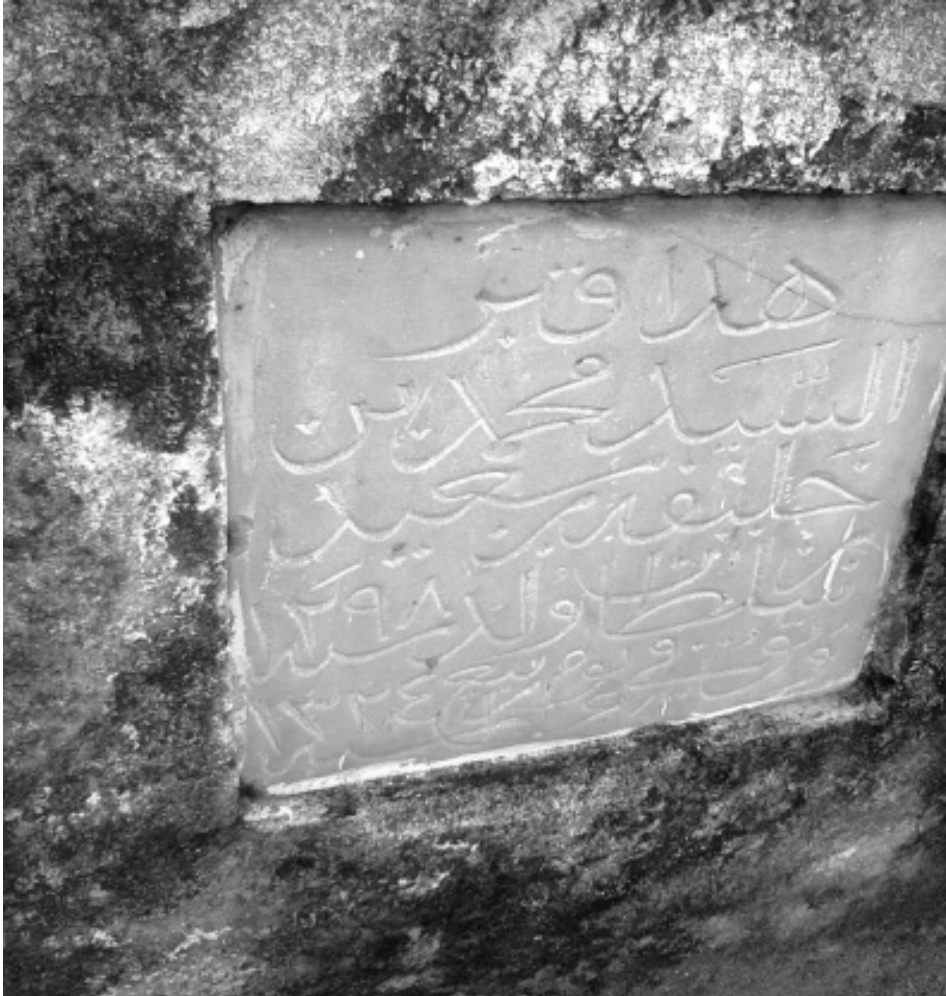 هذا قبر
السَّيد محمد بن
خليفة بن سعيد
سلطان ولد سنة ١٢٩٨
وتوفي في ربيع سنة ١٣٢٤